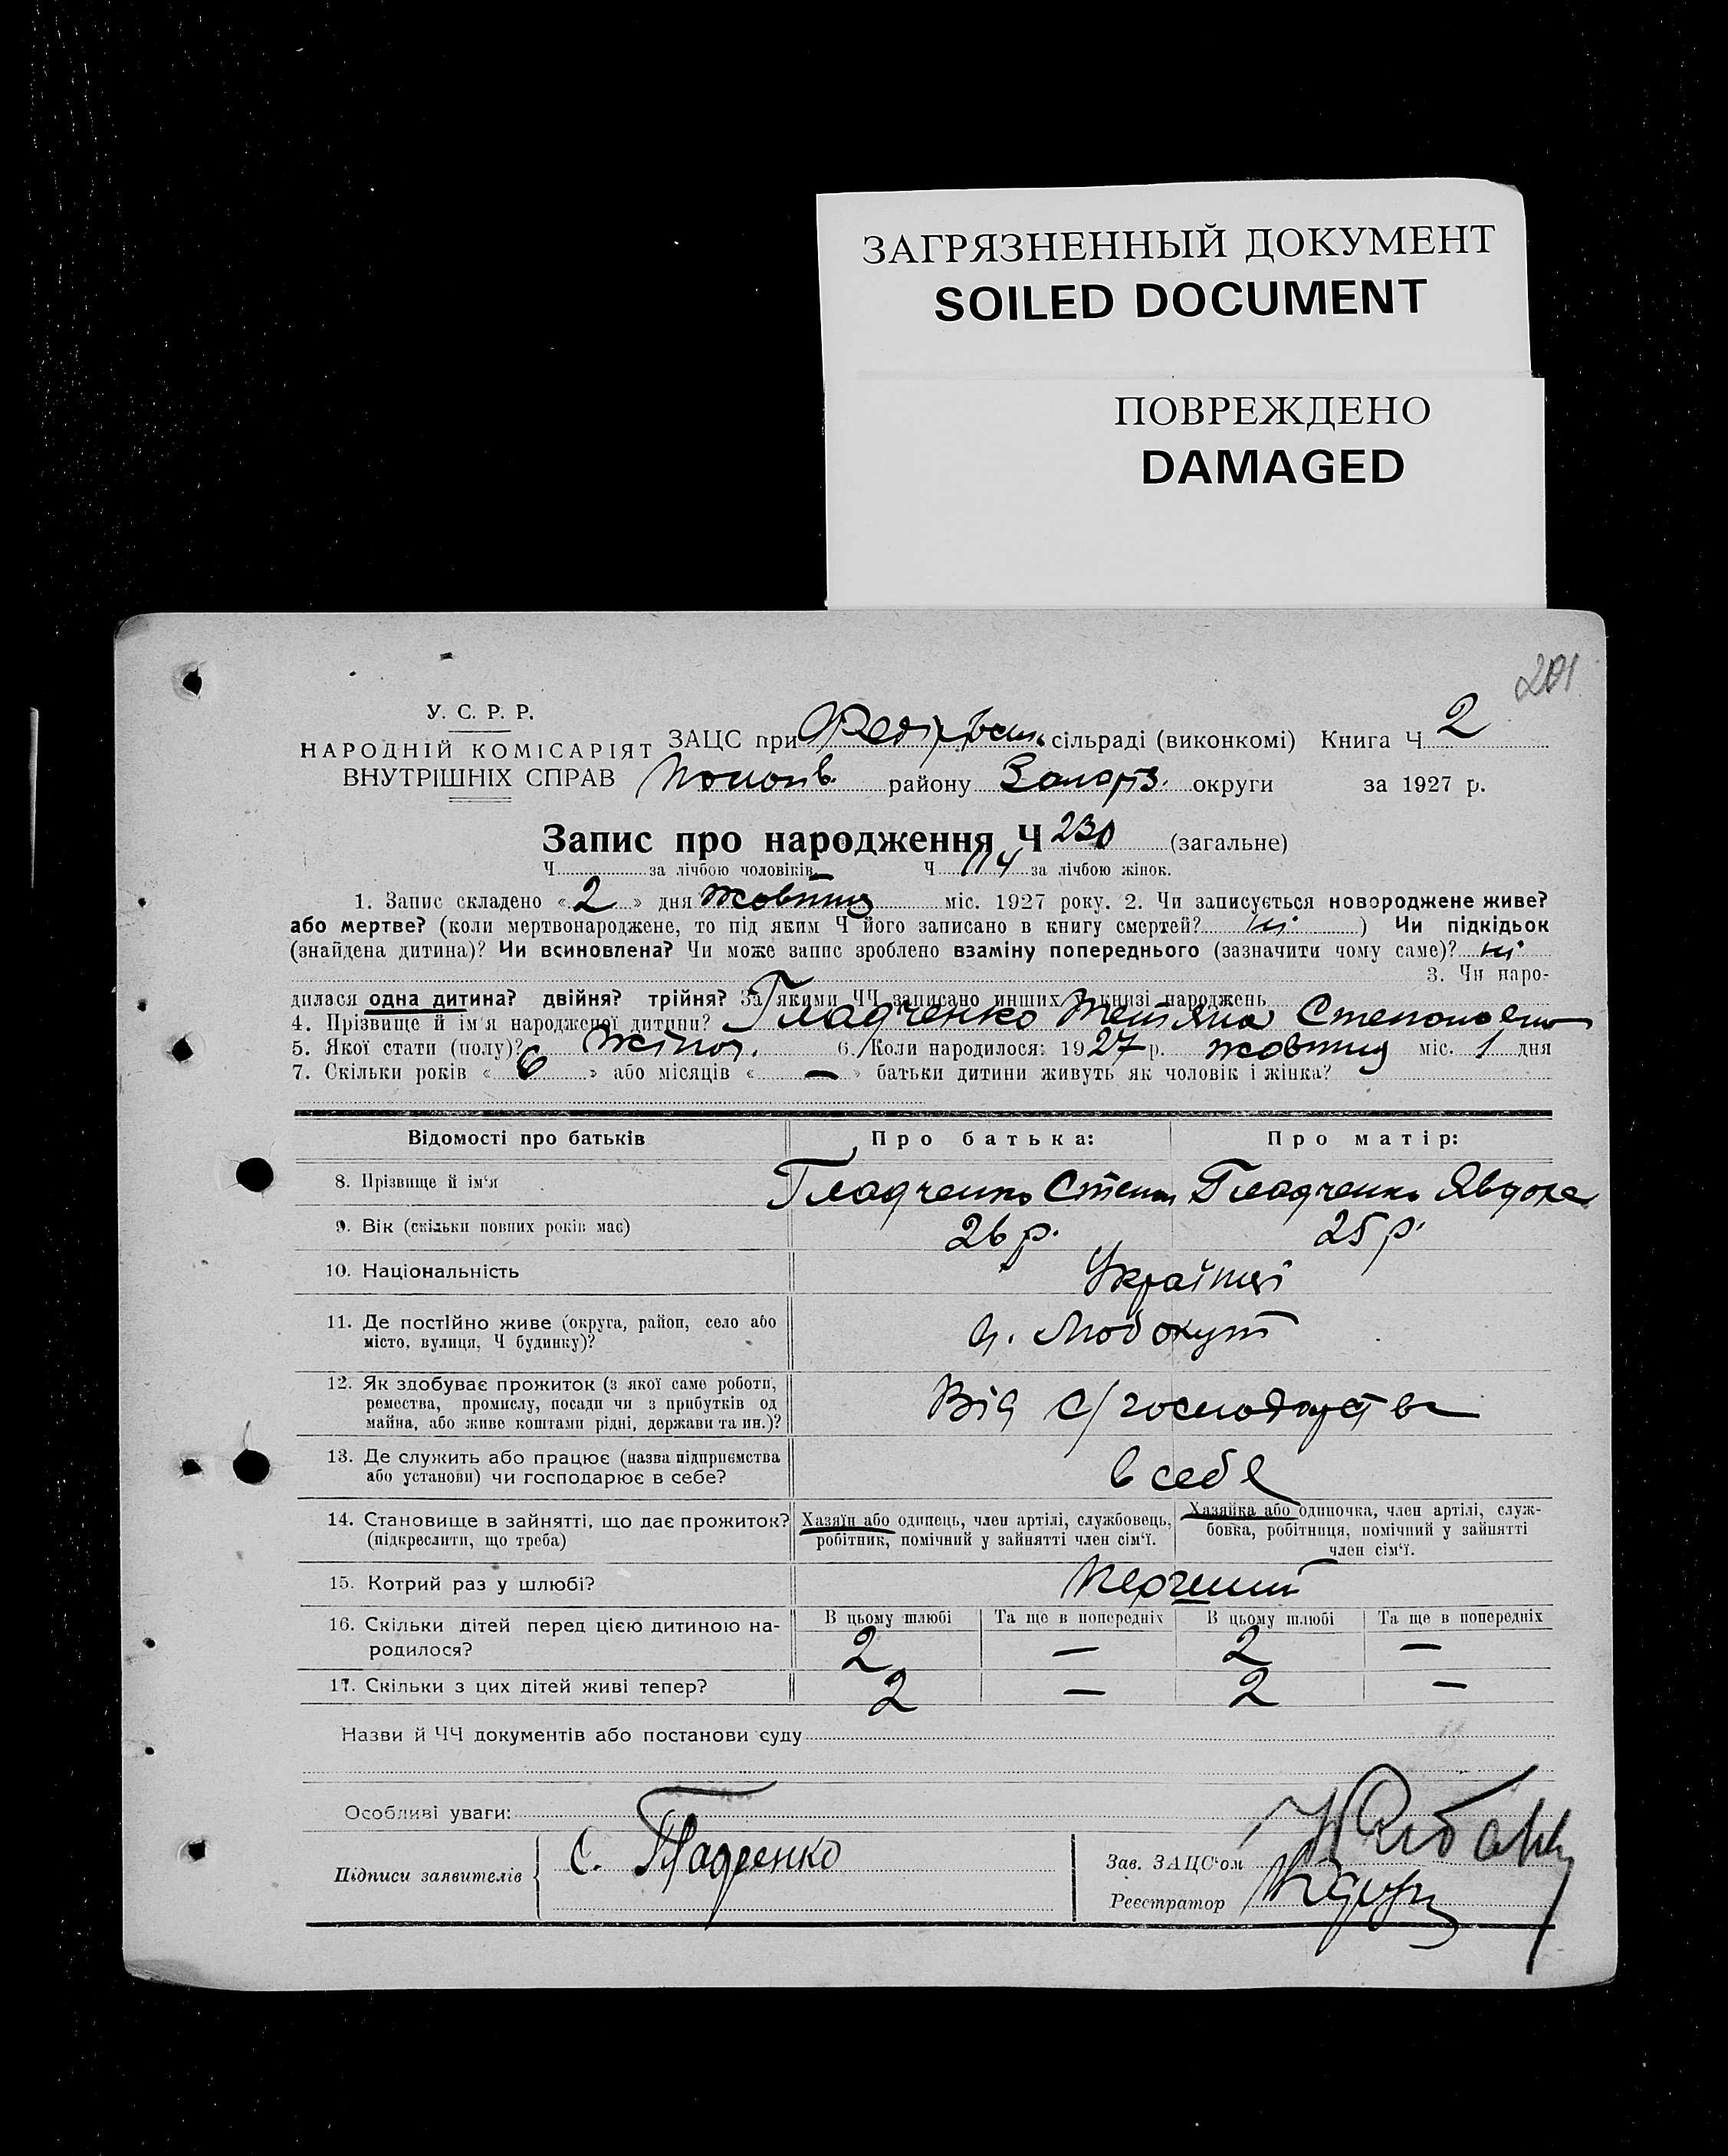 ЗАГРЯЗНЕННЫЙ ДОКУМЕНТ
SOILED DOCUMENT
ПОВРЕЖДЕНО
DAMAGED
201
У. С. Р. Р.
НАРОДНІЙ КОМІСАРІЯТ
ВНУТРІШНІХ СПРАВ
ЗАЦС при сільраді (виконкомі) Книга Ч 2
району Запоріз. округи за 1927 р.
Запис про народження Ч 230 (загальне)
Ч за лічбою чоловіків Ч 114 за лічбою жінок.
1. Запис складено « 2 » дня жовтня міс. 1927 року. 2. Чи записується новороджене живе?
або мертве? (коли мертвонароджене, то під яким Ч його записано в книгу смертей? ні ) Чи підкідьок
(знайдена дитина)? Чи всиновлена? Чи може запис зроблено взаміну попереднього (зазначити чому саме)? ні
3. Чи наро-
дилася одна дитина? двійня? трійня? За якими ЧЧ записано инших у книзі народжень
4. Прізвище й ім'я народженої дитини? Гладченко Тетяна Степановна
5. Якої стати (полу)? жіноч. 6. Коли народилося: 1927 р. жовтня міс. 1 дня
7. Скільки років « 6 » або місяців « — » батьки дитини живуть як чоловік і жінка?
Відомості про батьків Про батька: Про матір:
8. Прізвище й ім'я Гладченко Степан Гладченко Явдоха
9. Вік (скільки повних років має) 26 р. 25 р.
10. Національність Українці
11. Де постійно живе (округа, район, село або
місто, вулиця, Ч будинку)?
12. Як здобуває прожиток (з якої саме роботи,
ремества, промислу, посади чи з прибутків од
майна, або живе коштами рідні, держави та ин.)?
Від с/господарства
13. Де служить або працює (назва підприємства
або установи) чи господарює в себе?
в себе
14. Становище в зайнятті, що дає прожиток?
(підкреслити, що треба)
Хазяїн або одинець, член артілі, службовець,
робітник, помічний у зайнятті член сім'ї.
Хазяйка або одиночка, член артілі, служ-
бовка, робітниця, помічний у зайнятті
член сім'ї.
15. Котрий раз у шлюбі?
16. Скільки дітей перед цією дитиною на-
родилося?
В цьому шлюбі Та ще в попередніх В цьому шлюбі Та ще в попередніх
2 — 2 —
17. Скільки з цих дітей живі тепер? 2 — 2 —
Назви й ЧЧ документів або постанови суду
Особливі уваги:
Підписи заявителів С. Гладченко
Зав. ЗАЦС'ом
Реєстратор